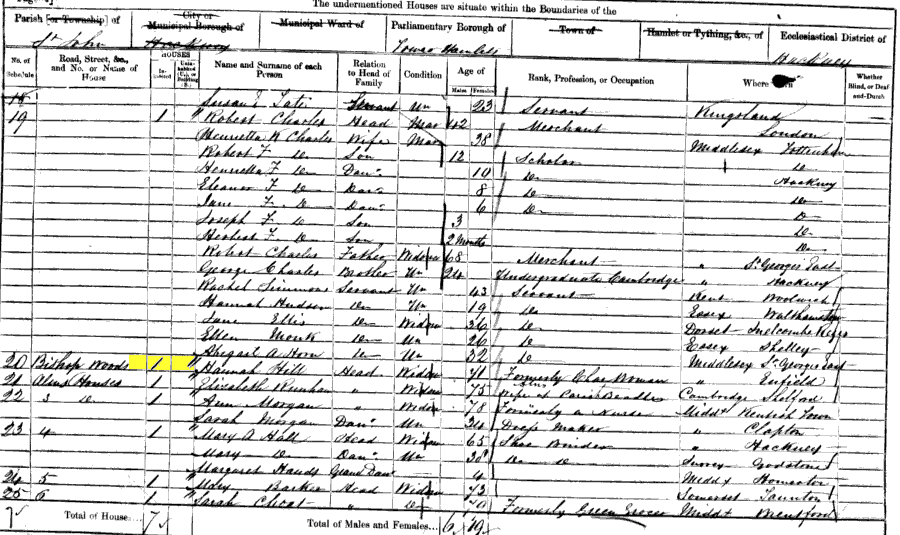 The undermentioned Houses are situate within the Boundaries of the
Parish [or Township] of City or Municipal Borough of Municipal Ward of Parliamentary Borough of Town of Hamlet or Tything, &c., of Ecclesiastical District of
St John Hackney Tower Hamlets Hackney
No. of Schedule Road, Street, &c., and No. or Name of House HOUSES Inhabited Uninhabited (U.), or Building (B.) Name and Surname of each Person Relation to Head of Family Condition Age of Males Females Rank, Profession, or Occupation Where Born Whether Blind, or Deaf-and-Dumb
18 Susan Servant Un 23 Servant Kingsland
19 1 Robert Charles Head Mar 42 Merchant London
Henrietta K Charles Wife Mar 38 Middlesex Tottenham
Robert F Do Son 12 Scholar Do
Henrietta F Do Daur 10 Do Hackney
Eleanor F Do Daur 8 Do Do
Jane F Do Daur 6 Do Do
Joseph F Do Son 3 Do
Herbert F Do Son 2 Months Do
Robert Charles Father Widower 68 Merchant " St Georges East
George Charles Brother Un 24 Undergraduate Cambridge " Hackney
Rachel Simmons Servant Un 43 Servant Kent Woolwich
Hannah Hudson Do Un 19 Do Essex Walthamstow
Jane Ellis Do Widow 36 Do Dorset Melcombe Regis
Ellen Monk Do Un 26 Do Essex Shelley
Abigail A Horn Do Un 32 Do Middlesex St Georges East
20 Bishop Woods 1 Hannah Hill Head Widow 71 Formerly Char Woman " Enfield
21 Alms Houses 1 Elizabeth " Widow 75 Wife of Parish Beadle Cambridge
22 3 Do 1 Ann Morgan " Widow 78 Formerly a Nurse Middx Kentish Town
Sarah Morgan Daur Un 34 Dress Maker " Clapton
23 4 1 Mary A Hall Head Widow 65 Shoe Binder " Hackney
Mary Do Daur Un 38 Do Do Surrey Godstone
Margaret Grand Daur 4 Middx Homerton
24 5 1 Mary Barker Head Widow 73 Somerset Taunton
25 6 1 Sarah " Do 70 Formerly Green Grocer Middx Brentford
7 Total of House... 7 Total of Males and Females... 6 19